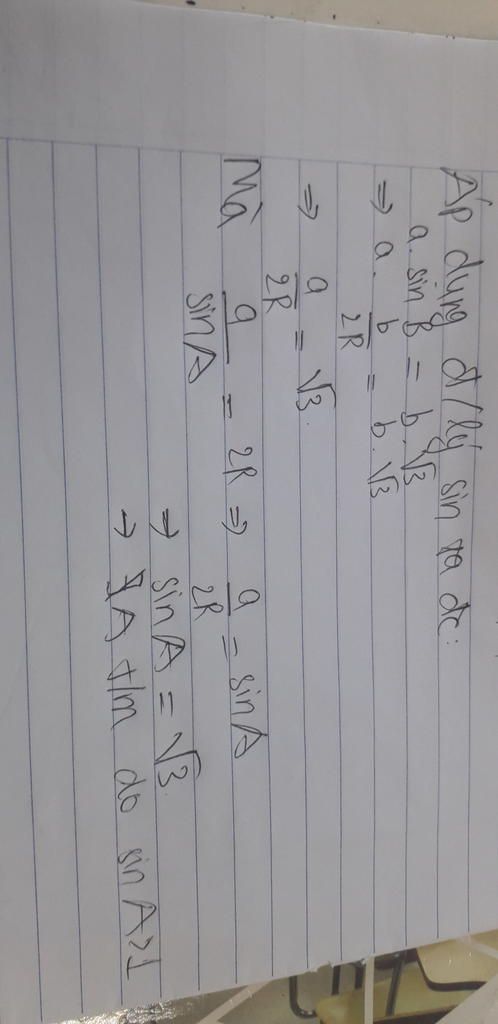 Áp dụng đ/lý sin ta dc:
a. sin B = b.√3
⇒ a. b/2R = b.√3
⇒ a/2R = √3.
Mà a/sinA = 2R ⇒ a/2R = sinA
→ sinA = √3.
→ ∄ A t/m do sin A>1